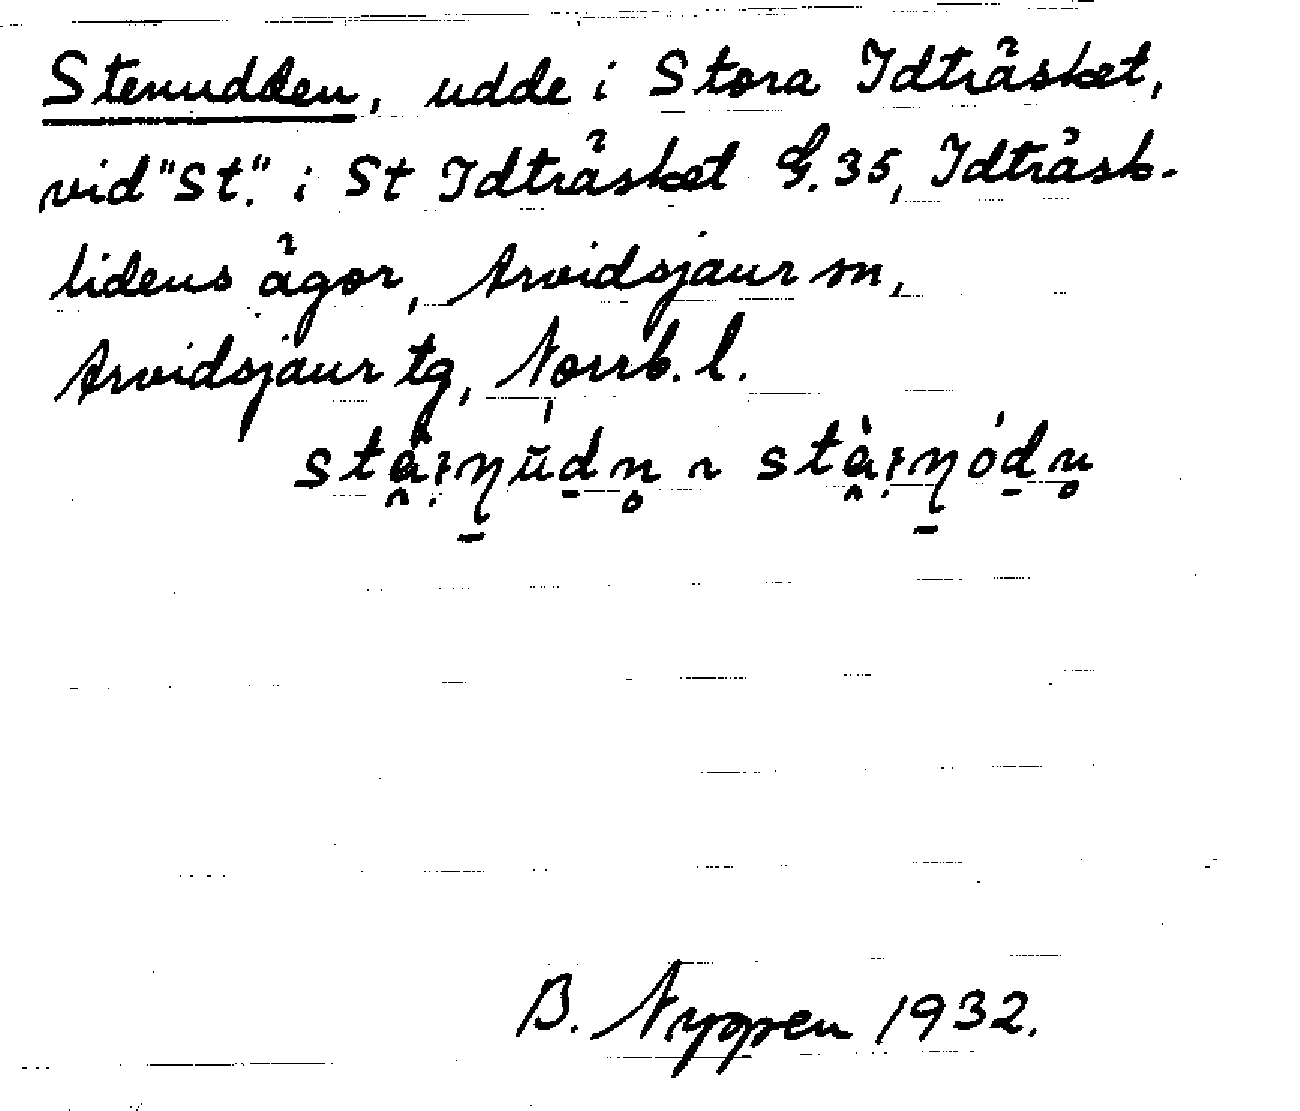 Stenudden, udde i Stora Idträsket,
vid "St." i St Idträsket G.35, Idträsk-
lidens ägor, Arvidsjaur sn,
Arvidsjaur tg, Norrb. l.
B. Nyppen 1932.